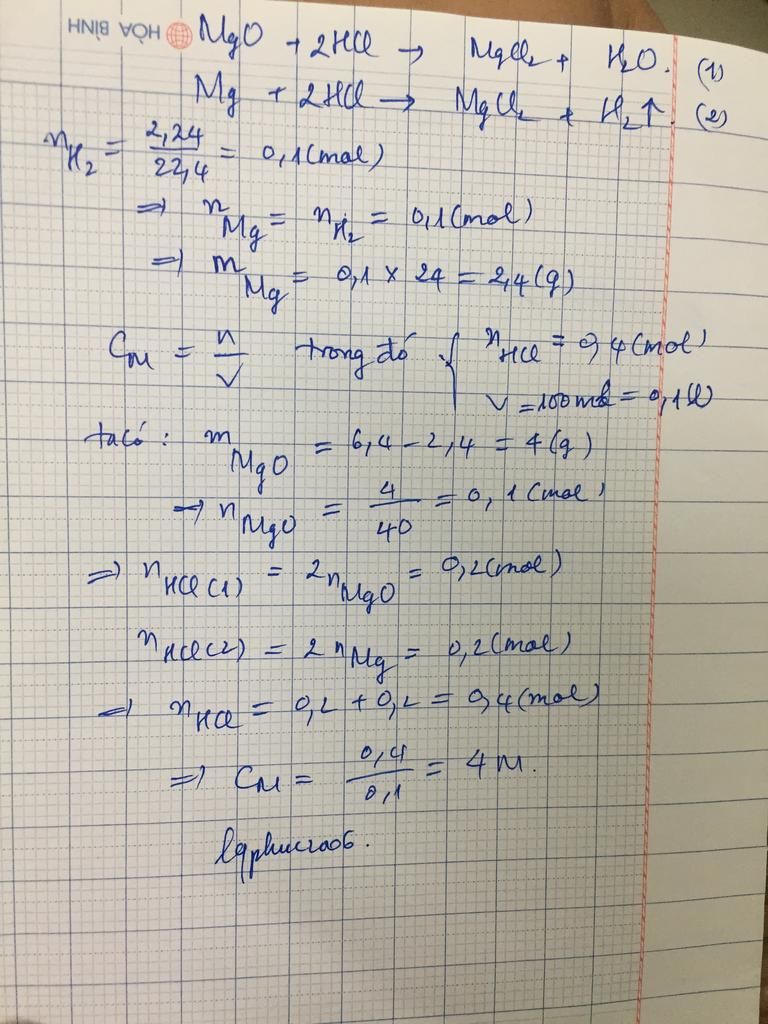 HÒA BÌNH
MgO + 2HCl → MgCl₂ + H₂O. (1)
Mg + 2HCl → MgCl₂ + H₂↑. (2)
n_H₂ = 2,24/22,4 = 0,1(mol)
=> n_Mg = n_H₂ = 0,1(mol)
=> m_Mg = 0,1 × 24 = 2,4(g)
C_M = n/V trong đó { n_HCl = 0,4(mol)
V = 100ml = 0,1(l)
ta có : m_MgO = 6,4 - 2,4 = 4(g)
→ n_MgO = 4/40 = 0,1(mol)
=> n_HCl(1) = 2n_MgO = 0,2(mol)
n_HCl(2) = 2n_Mg = 0,2(mol)
=> n_HCl = 0,2 + 0,2 = 0,4(mol)
=> C_M = 0,4/0,1 = 4M.
lqphuc2006.